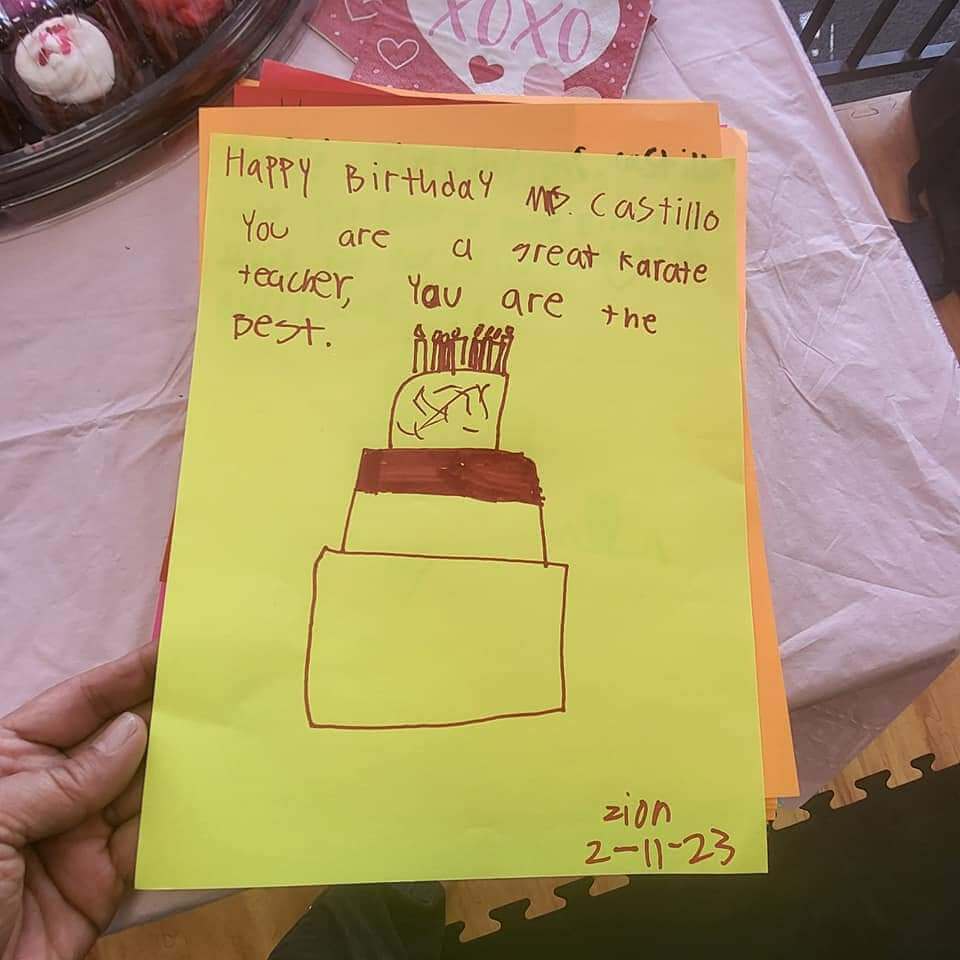 XOXO
Happy Birthday Ms. Castillo
You are a great Karate
teacher, You are the
Best.
zion
2-11-23